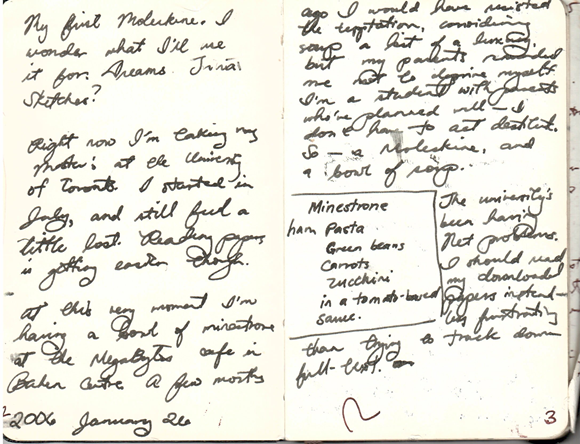 My first Moleskine. I
wonder what I'll use
it for. Dreams. Trivia.
Sketches?
Right now I'm taking my
master's at the University
of Toronto. I started in
July, and still feel a
little lost. Reading papers
is getting easier though.
At this very moment I'm
having a bowl of minestrone
at the Megabytes cafe in
Bahen Centre. A few months
2006 January 26
ago I would have resisted
the temptation, considering
soup a bit of a luxury
but my parents reminded
me not to deprive myself.
I'm a student with parents
who've planned well – I
don't have to act destitute.
So – a Moleskine, and
a bowl of soup.
Minestrone
ham Pasta
Green beans
Carrots
Zucchini
in a tomato-based
sauce.
The university's
been having
Net problems.
I should read
my downloaded
papers instead –
less frustrating
than trying to track down
full-text.
2
3